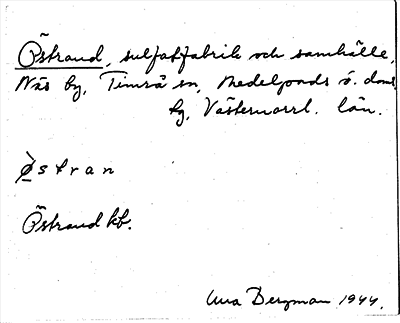 Östrand, sulfatfabrik och samhälle,
Näs by, Timrå sn, Medelpads ö. doms.
hg, Västernorrl. län.
østran
Östrand kb.
Una Bergman 1944.